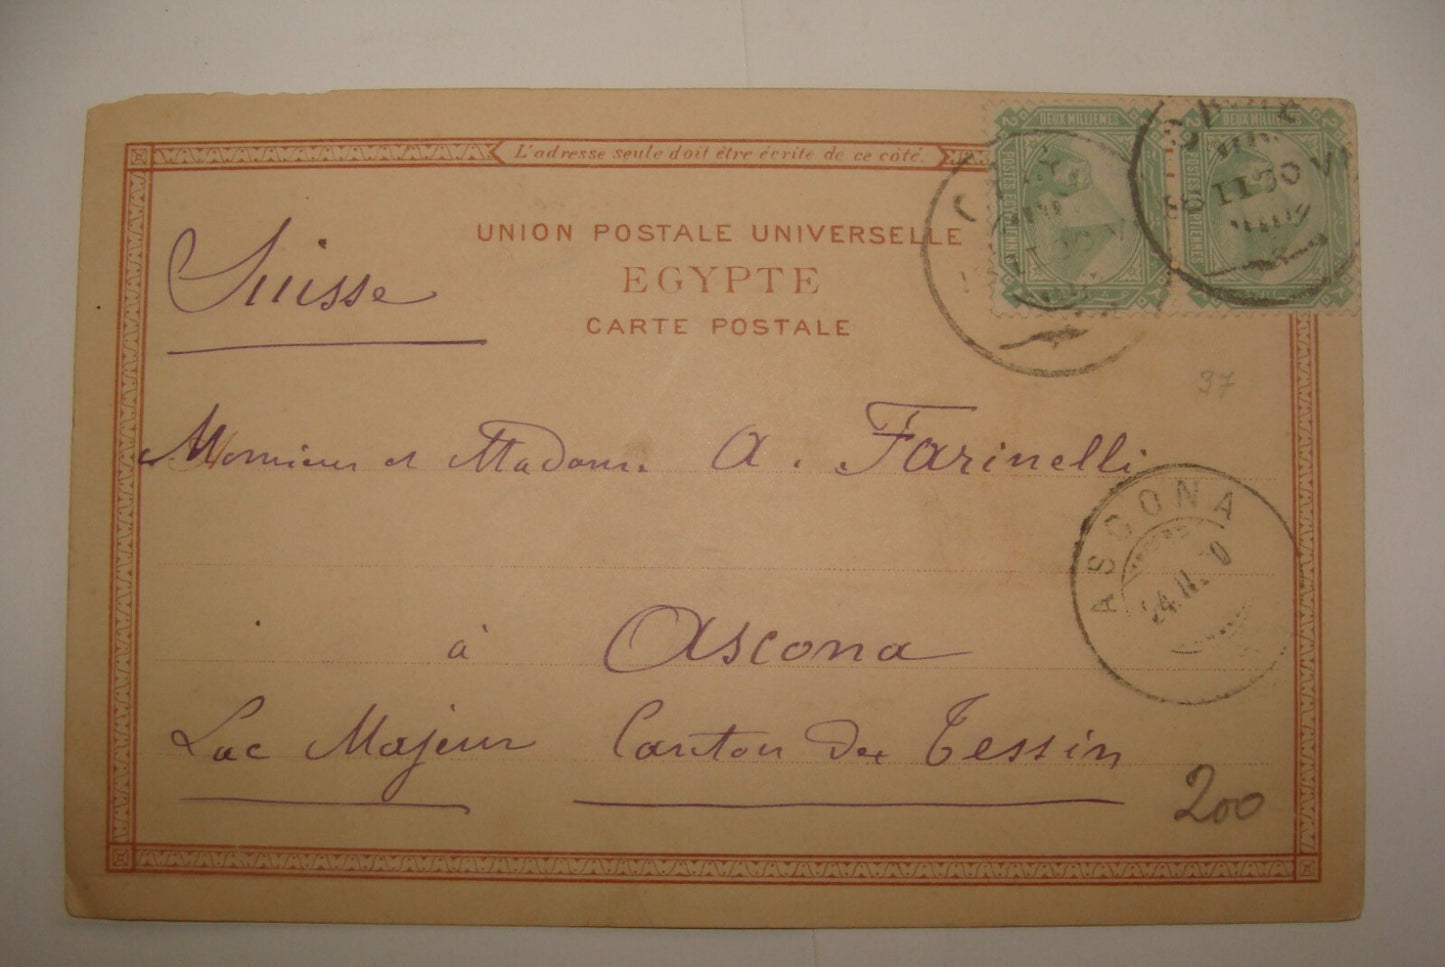 L'adresse seule doit être écrite de ce côté.
UNION POSTALE UNIVERSELLE
EGYPTE
CARTE POSTALE
2 DEUX MILLIEMES 2
2 DEUX MILLIEMES
Suisse
37
Monsieur et Madame A. Farinelli
ASCONA
à Ascona
Lac Majeur Canton du Tessin
200